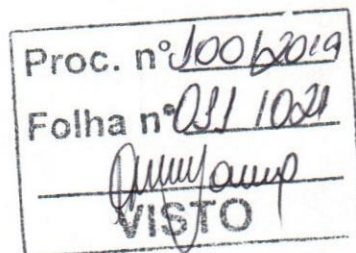 Proc. nº 100/2019
Folha nº 011/021
VISTO